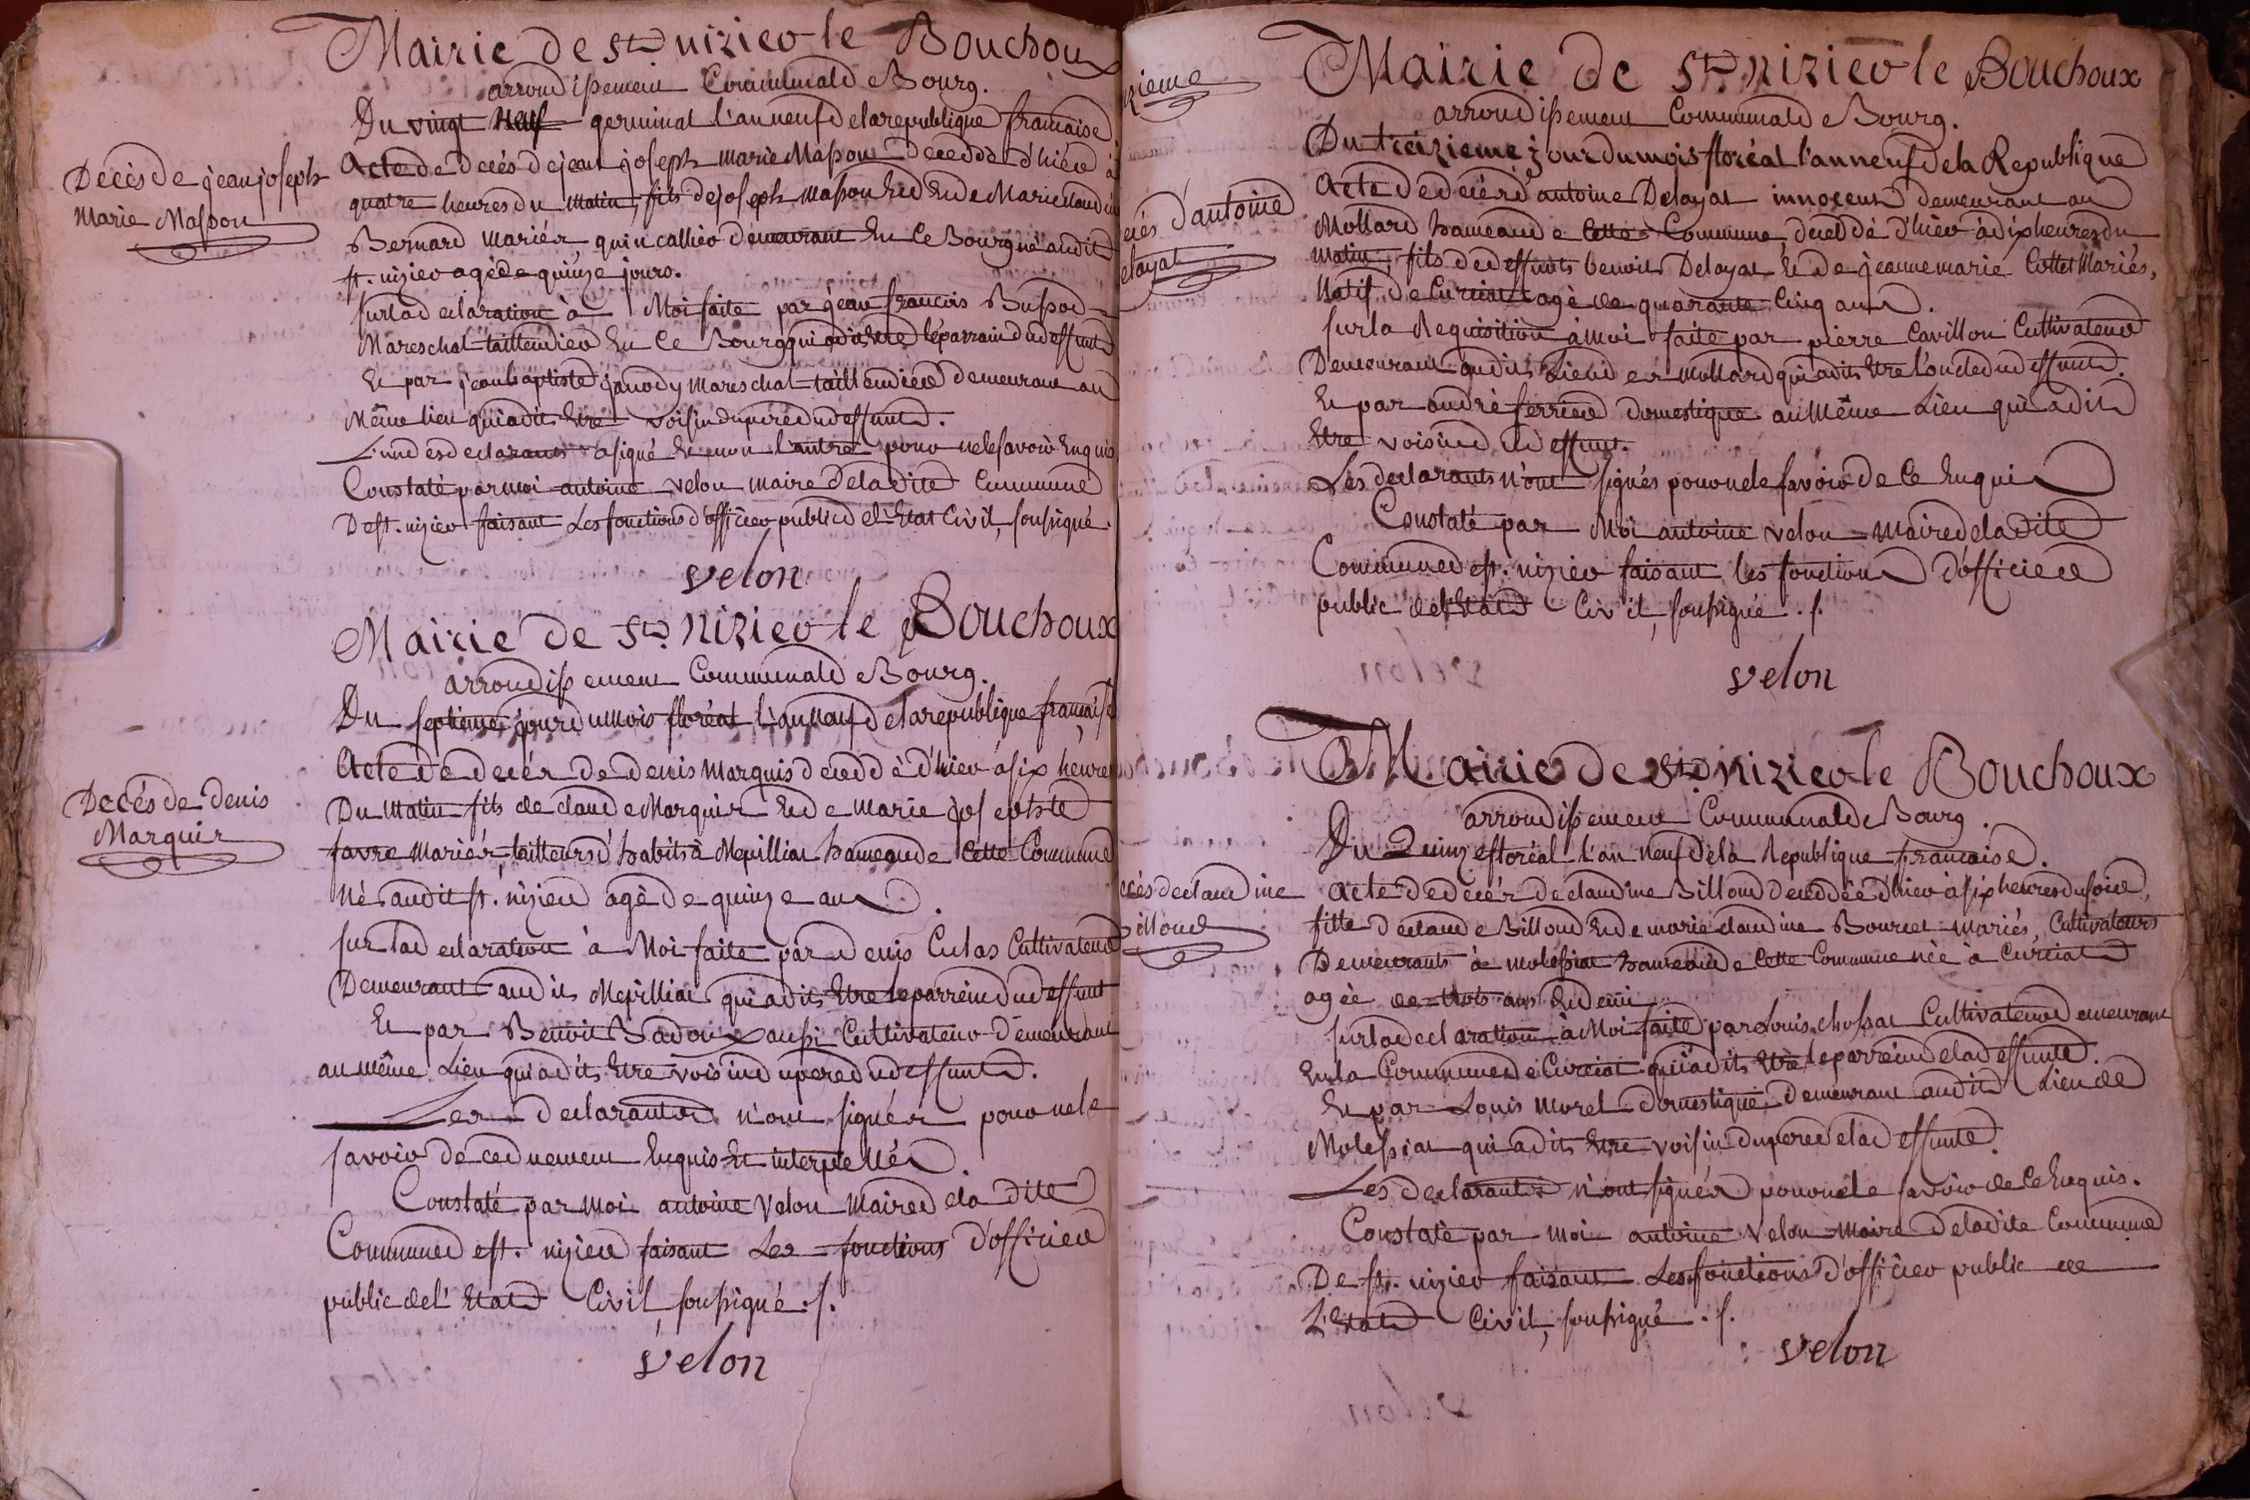 Mairie de St. nizier le Bouchoux
arrondissement Communal de Bourg.
Du vingt neuf germinal l'an neuf de la republique française
Decès de jean joseph
Marie Masson
Acte de decés de jean joseph marie Masson decedé d'hier à
quatre heures du matin, fils de joseph masson et de Marie claudine
Bernard mariés, quincallier demeurant en ce Bourg né audit
st. nizier agé de quinze jours.
sur la declaration à Moi faite par jean françois Bussod
Mareschal taillendier en ce Bourg qui a dit etre le parrain du deffunt
Et par jean baptiste janody mareschal taillendier demeurant au
Même lieu qui a dit Etre voisin du pere du deffunt.
L'un des declarants a signé Et non l'autre pour ne le savoir Enquis
Constaté par moi antoine velon maire de la dite Commune
De st. nizier faisant Les fonctions d'officier public de l'Etat Civil, soussigné.
velon
Mairie de St. Nizier le Bouchoux
arrondissement Communal de Bourg.
Du septieme jour du Mois floréal l'an neuf de la republique française
Decés de denis
Marquis
Acte de decés de denis Marquis decedé d'hier à six heures
Du matin fils de claude Marquis et de marie josephte
favre mariés, tailleurs d'habits à Mepilliat hameau de Cette Commune
Né audit st. nizier agé de quinze ans.
sur la declaration à Moi faite par denis Culas Cultivateur
Demeurant audit Mepilliat qui a dit Etre le parrein du deffunt
Et par Benoit Badoux aussi Cultivateur demeurant
au même Lieu qui a dit Etre voisin du pere du deffunt.
Les declarants n'ont signés pour ne le
savoir de ce duement Enquis Et interpellés.
Constaté par moi antoine Velon Maire de la dite
Commune de st. nizier faisant Les fonctions d'officier
public de l'Etat Civil, soussigné ./.
velon
Mairie de St. nizier le Bouchoux
arrondissement Communal de Bourg.
Du treizieme jour du mois floréal l'an neuf de la Republique
d'antoine
elayat
Acte de decés d'antoine Delayat innocent demeurant au
Mollard hameau de cette Commune, decedé d'hier à dix heures du
matin, fils de deffunts benoit Delayat Et de jeanne marie Cottet Mariés,
Natif de Curciat agé de quarante Cinq ans.
sur la Requisition à Moi faite par pierre Cavillon Cultivateur
Demeurant audit Lieu des Mollard qui a dit Etre l'oncle du deffunt.
Et par andré ferrier domestique au Même Lieu qui a dit
Etre voisin du deffunt.
Les declarants n'ont signés pour ne le savoir de Ce Enquis
Constaté par Moi antoine velon maire de la dite
Commune de st. nizier faisant les fonctions d'officier
public de l'Etat Civil, soussigné ./.
velon
Mairie de St. nizier le Bouchoux
arrondissement Communal de Bourg.
Du Quinze floréal l'an neuf de la Republique française.
de claudine
Billoud
Acte de decés de claudine Billoud decedée d'hier à six heures du soir,
fille de claude Billoud Et de marie claudine Bourcet mariés, Cultivateurs
Demeurants à molessiat hameau de Cette Commune née à Curciat
agée de trois ans Et demi
sur la declaration à Moi faite par Louis chossat Cultivateur demeurant
En la Commune de Curciat qui a dit Etre le parrein de la deffunte.
Et par Louis Morel domestique, demeurant audit Lieu de
Molessiat qui a dit Etre voisin du pere de la deffunte.
Les declarants n'ont signés pour ne le savoir de Ce Enquis.
Constaté par moi antoine Velon maire de la dite Commune
De st. nizier faisant Les fonctions d'officier public de
L'Etat Civil, soussigné ./.
velon